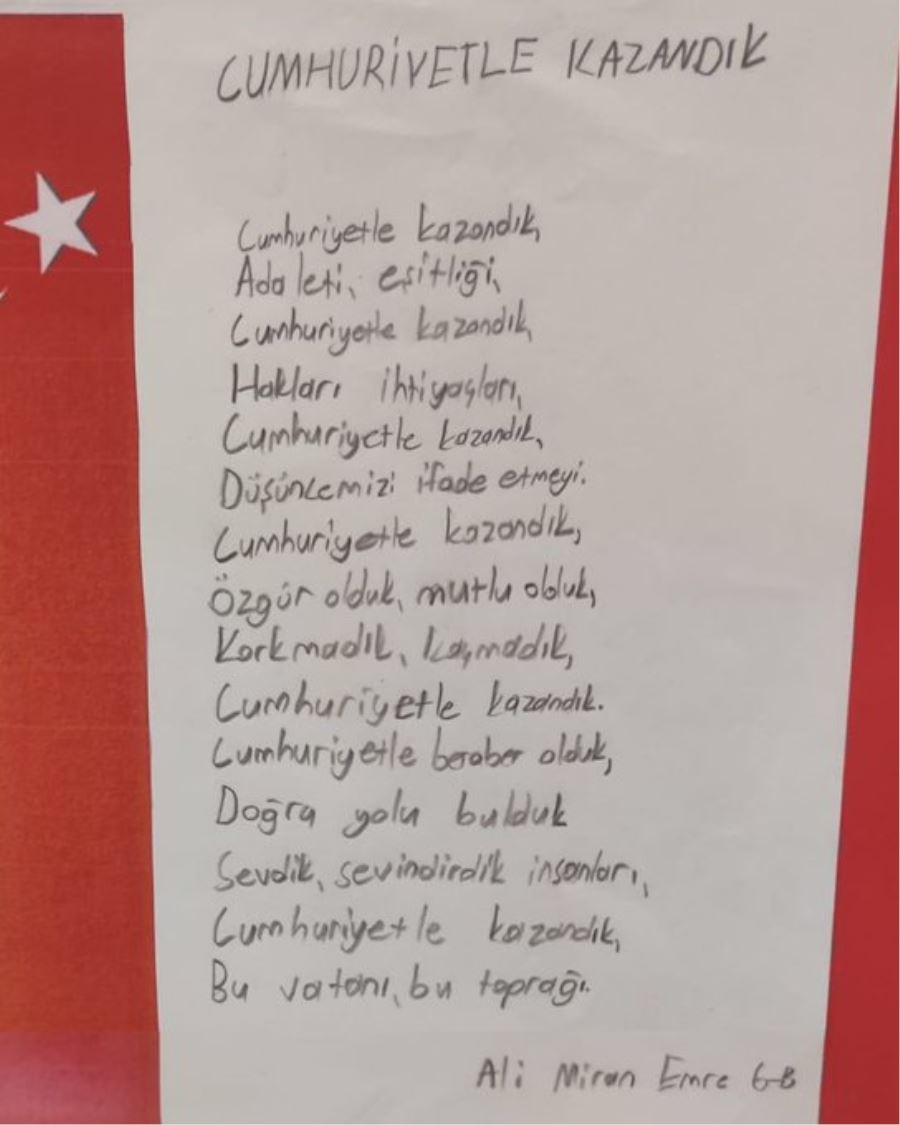 CUMHURİYETLE KAZANDIK
Cumhuriyetle kazandık,
Adaleti, eşitliği,
Cumhuriyetle kazandık,
Hakları ihtiyaçları,
Cumhuriyetle kazandık,
Düşüncemizi ifade etmeyi.
Cumhuriyetle kazandık,
Özgür olduk, mutlu olduk,
Korkmadık, kaçmadık,
Cumhuriyetle kazandık.
Cumhuriyetle beraber olduk,
Doğru yolu bulduk
Sevdik, sevindirdik insanları,
Cumhuriyetle kazandık,
Bu vatanı, bu toprağı.
Ali Miran Emre 6-B